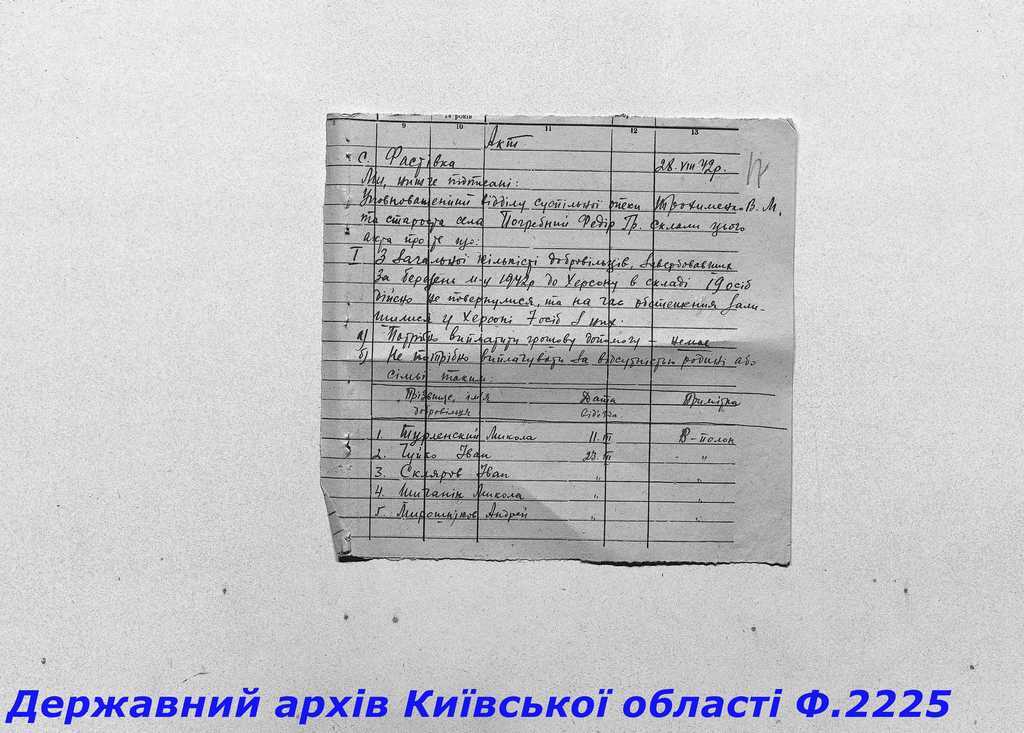 14 років
9 10 11 12 13
Акт
с. Фастівка 28.VIII 42р. 17
Ми, нижче підписані:
Уповноважений відділу суспільної опеки Трохименко В. М.
та староста села Погребний Федір Гр. склали цього
акта про те що:
I З загальної кількісті добровільців, завербовавших
за березень м-ц 1942р до Херсону в складі 19 осіб
дійсно не повернулися, та на час обстеження зали-
шилися у Херсоні 7 осіб з них.
а) Потрібно виплатити грошову допомогу – немає
б) Не потрібно виплачувати за відсутністю родини або
сімьі таким:
Прізвище, імʼя Дата Примітка
добровільця
1. Турленский Микола 11.III В-полон
2. Чуйко Іван 23.III "
3. Скляров Іван " "
4. Микола " "
5. Мирошніков Андрей " "
Державний архів Київської області Ф.2225